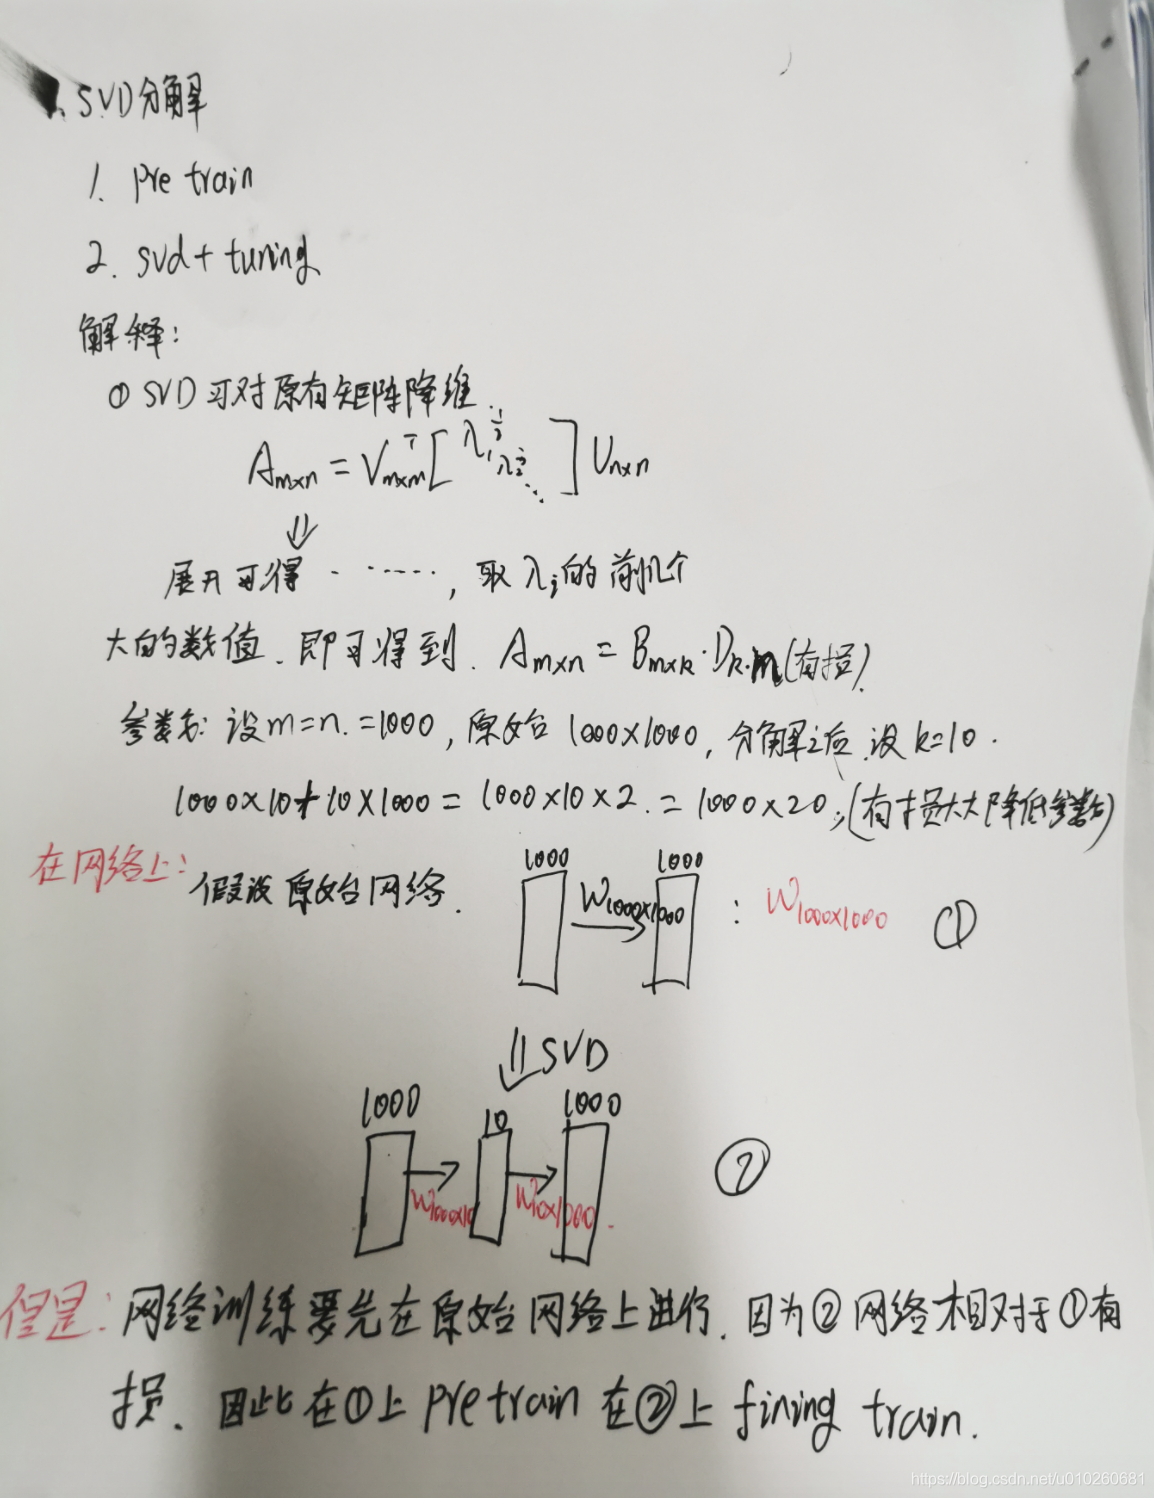 SVD分解
1. pre train
2. svd + tuning
解释:
① SVD 可对原有矩阵降维
Aₘₓₙ = Vᵀₘₓₘ [ λ₁^½ λ₂^½ ⋱ ] Uₙₓₙ
⇓
展开可得 ······, 取 λᵢ的前几个
大的数值、即可得到. Aₘₓₙ = Bₘₓₖ·Dₖ.ₙ (有损)
参数: 设m=n.=1000, 原始 1000×1000, 分解之后.设 k=10.
1000×10+10×1000 = 1000×10×2. = 1000×20; (有损大大降低参数)
在网络上: 假设原始网络.
1000 1000
W₁₀₀₀ₓ₁₀₀₀ : W₁₀₀₀ₓ₁₀₀₀ ①
⇓ SVD
1000 10 1000
W₁₀₀₀ₓ₁₀ W₁₀ₓ₁₀₀₀. ②
但是: 网络训练要先在原始网络上进行. 因为②网络相对于①有
损. 因此在①上 pre train 在②上 fining train.
https://blog.csdn.net/u010260681